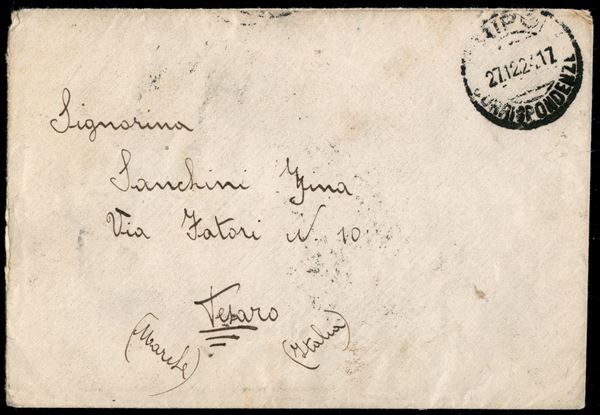 27.12.24.17
CORRISPONDENZE
Signorina
Sanchini Gina
Via Fatori N. 10
Pesaro
(Marche)
(Italia)